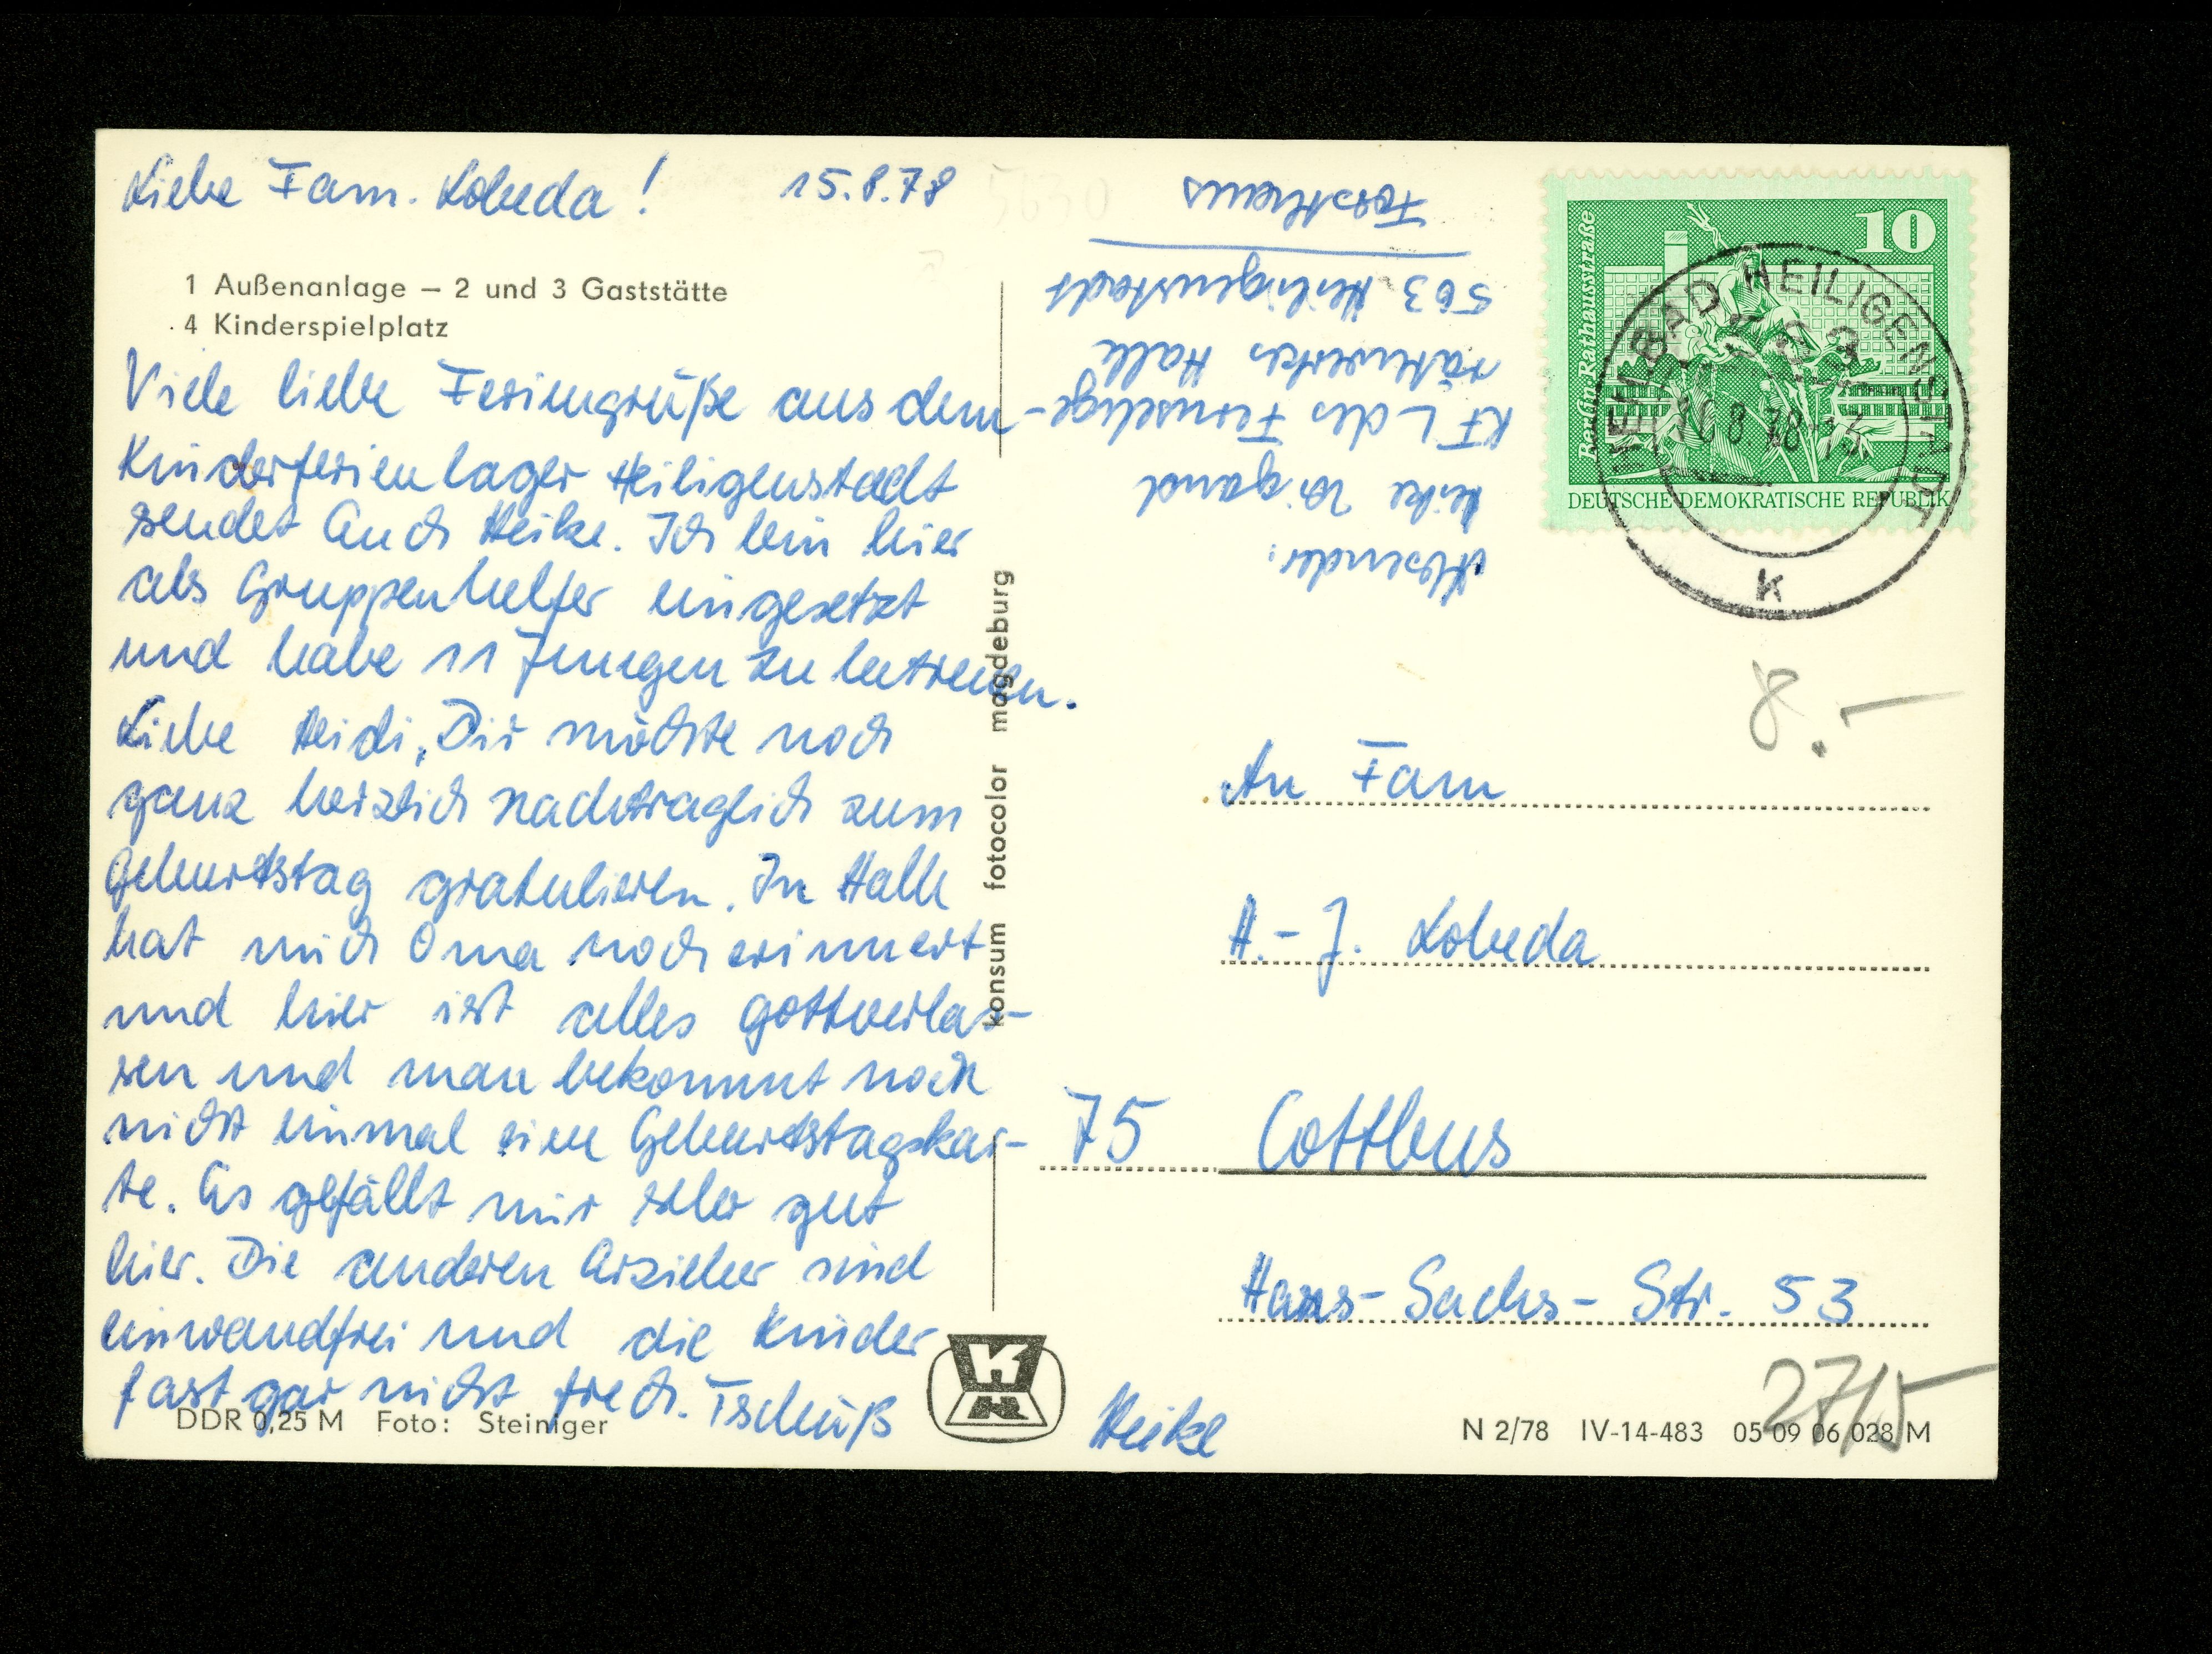 Liebe Fam. Lobeda! 15.8.78
1 Außenanlage – 2 und 3 Gaststätte
4 Kinderspielplatz
Viele liebe Feriengrüße aus dem
Kinderferienlager Heiligenstadt
sendet Euch Heike. Ich bin hier
als Gruppenhelfer eingesetzt
und habe 11 Jungen zu betreuen.
Liebe Heidi, Dir möchte noch
ganz herzlich nachträglich zum
Geburtstag gratulieren. In Halle
hat mich Oma noch erinnert
und hier ist alles gottverlas-
sen und man bekommt noch
nicht einmal eine Geburtstagskar-
te. Es gefällt mir sehr gut
hier. Die anderen Erzieher sind
einwandfrei und die Kinder
fast gar nicht frech. Tschüß
Heike
DDR 0,25 M Foto: Steiniger
konsum fotocolor magdeburg
KH
Absender:
Heike Wigand
KFL des Fernmelde-
werkes Halle
563 Heiligenstadt
Forsthaus
10
Berlin, Rathausstraße
DEUTSCHE DEMOKRATISCHE REPUBLIK
HEILBAD HEILIGENSTADT
563
16.8.78-16
k
8.–
An Fam
H.-J. Lobeda
75 Cottbus
Hans-Sachs-Str. 53
27/5
N 2/78 IV-14-483 05 09 06 028 M